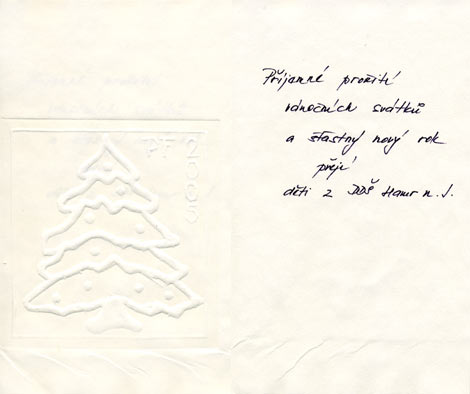 PF 2006
Příjemné prožití
vánočních svátků
a šťastný nový rok
přejí
děti z DDŠ Hamr n. J.